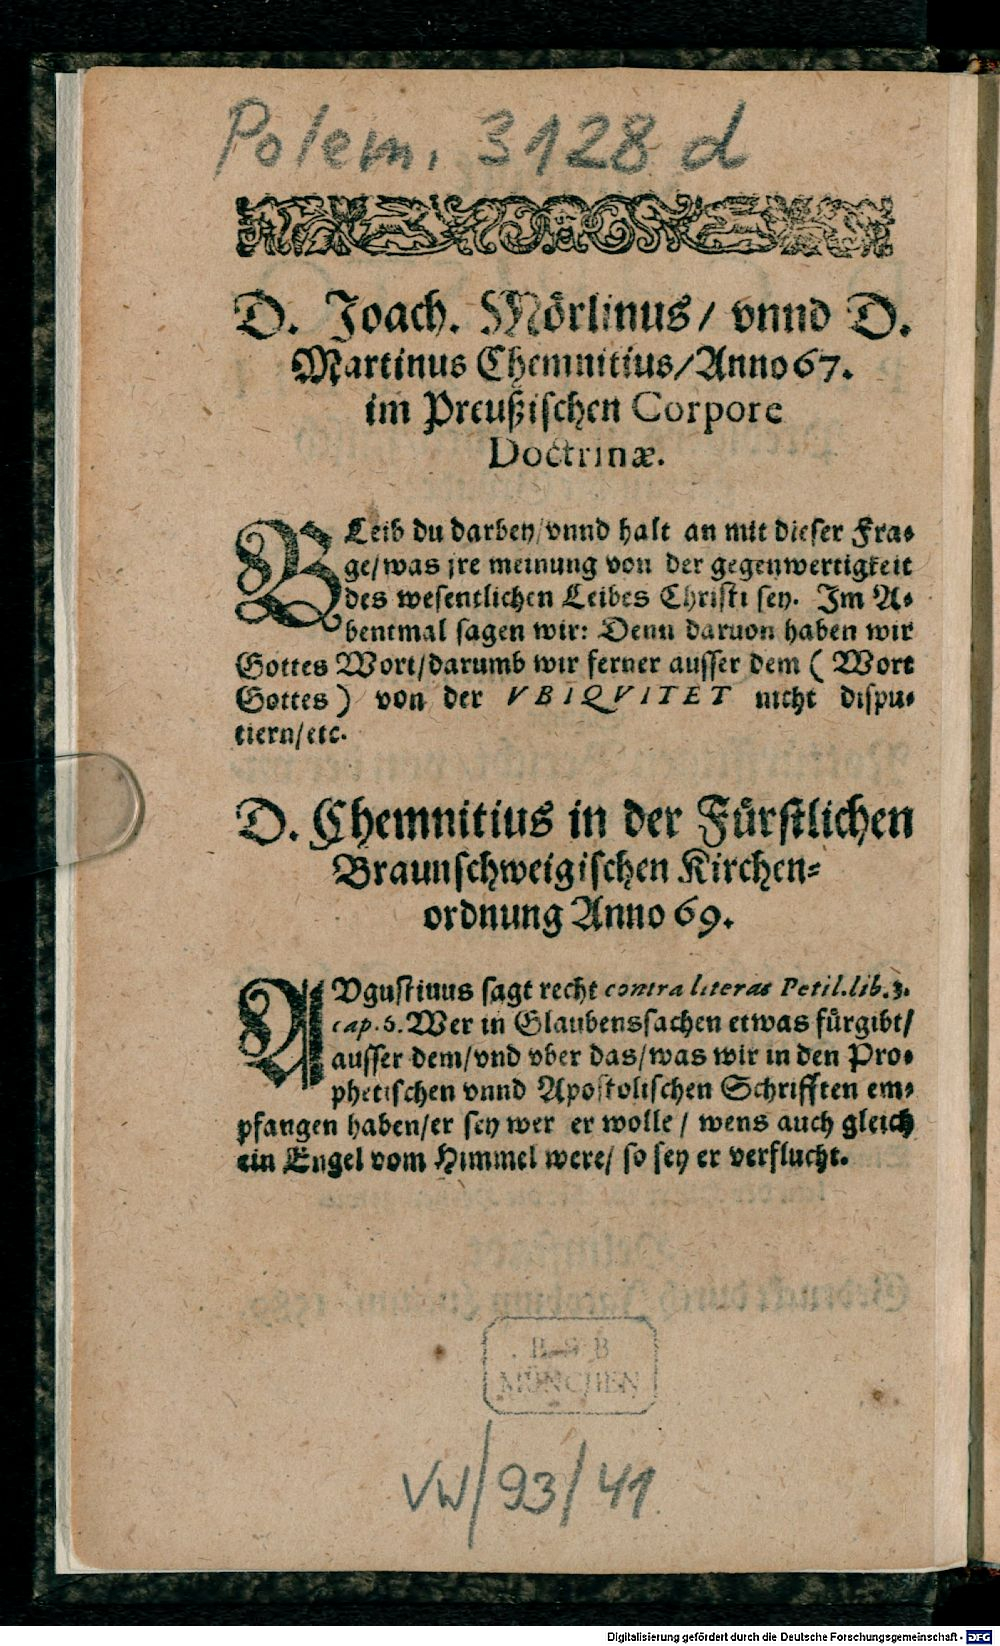 Polem. 3128 d
D. Joach. Mörlinus/ vnnd D.
Martinus Chemnitius/Anno 67.
im Preußischen Corpore
Doctrinæ.
BLeib du darbey/vnnd halt an mit dieser Fra-
ge/was jre meinung von der gegenwertigkeit
des wesentlichen Leibes Christi sey. Im A-
bentmal sagen wir: Denn daruon haben wir
Gottes Wort/darumb wir ferner ausser dem ( Wort
Gottes ) von der VBIQVITET nicht dispu-
tiern/etc.
D. Chemnitius in der Fürstlichen
Braunschweigischen Kirchen-
ordnung Anno 69.
AVgustinus sagt recht contra literas Petil.lib.3.
cap.6. Wer in Glaubenssachen etwas fürgibt/
ausser dem/vnd vber das/was wir in den Pro-
phetischen vnnd Apostolischen Schrifften em-
pfangen haben/er sey wer er wolle / wens auch gleich
ein Engel vom Himmel were/ so sey er verflucht.
MÜNCHEN
VW/93/41
Digitalisierung gefördert durch die Deutsche Forschungsgemeinschaft - DFG